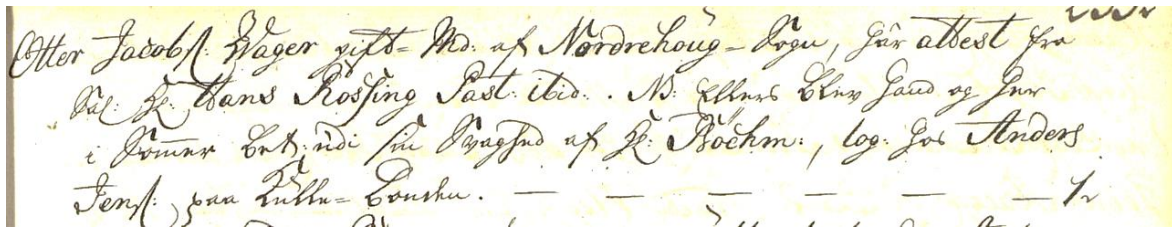 Otter Jacobs: Wager gift= Md: af Nordrehoug= Sogn, har attest fra
Sal: Hr: Hans Rossing Past: ibid: . NB: Ellers blev hand og her
i Sommer bet: udi sin Svaghed af Hr: Bøchm:, log: hos Anders
Jens: paa Kulle= Bonden. — — — — — — 1.